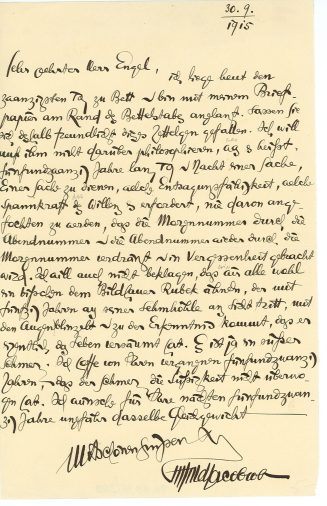 30.9.
1915
Sehr geehrter Herr Engel,
ich liege heut den
zwanzigsten Tag zu Bett & bin mit meinem Brief-
papier am Rand des Bettelstabs anglangt. Lassen Sie
sich deshalb freundlichst dieses Zettelchen gefallen. Ich will
auf ihm nicht darüber philosophieren, was es heisst,
fünfundzwanzig Jahre lang Tag & Nacht einer Sache,
einer Sache zu dienen, welche Entsagungsfähigkeit, welche
Spannkraft des Willens es erfordert, nie daran ange-
fochten zu werden, dass die Morgennummer durch die
Abendnummer & die Abendnummer wieder durch die
Morgennummer verdrängt & in Vergessenheit gebracht
wird. Ich will auch nicht beklagen, dass wir alle wohl
ein bisschen dem Bildhauer Rubek ähneln, der mit
fünfzig Jahren aus seiner Lehmhütte ans Licht tritt, mit
den Augen blinzelt & zu der Erkenntnis kommt, dass er
eigentlich das Leben versäumt hat. Es ist ja ein süsser
Schmerz. Ich hoffe von Ihren vergangenen fünfundzwanzig
Jahren, dass der Schmerz die Süssigkeit nicht überwo-
gen hat. Ich wünsche für Ihre nächsten fünfundzwan-
zig Jahre ungefähr dasselbe Gleichgewicht
Mit schönen Grüssen
Jacobsohn